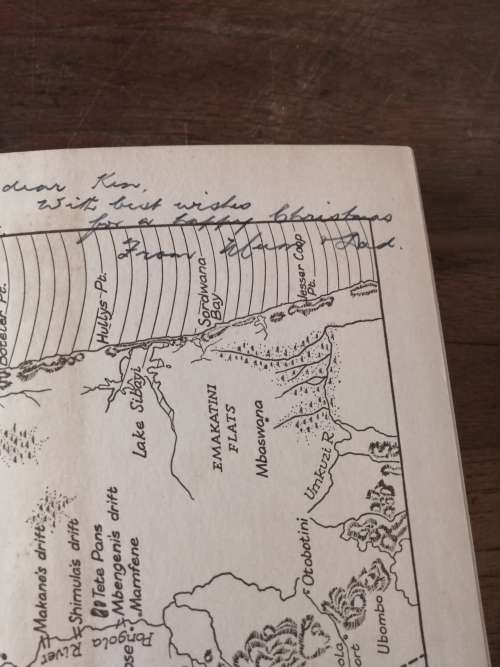 dear Ken,
With best wishes
for a happy Christmas
From Mum & Dad.
Hullys Pt.
Sordwana
Bay
Jesser Coop
Pt.
Lake Sibayi
EMAKATINI
FLATS
Mbaswana
Umkuzi R.
Makane's drift
Shimula's drift
Tete Pans
Mbengeni's drift
Mamfene
Pongola
River
Otobotini
Ubombo